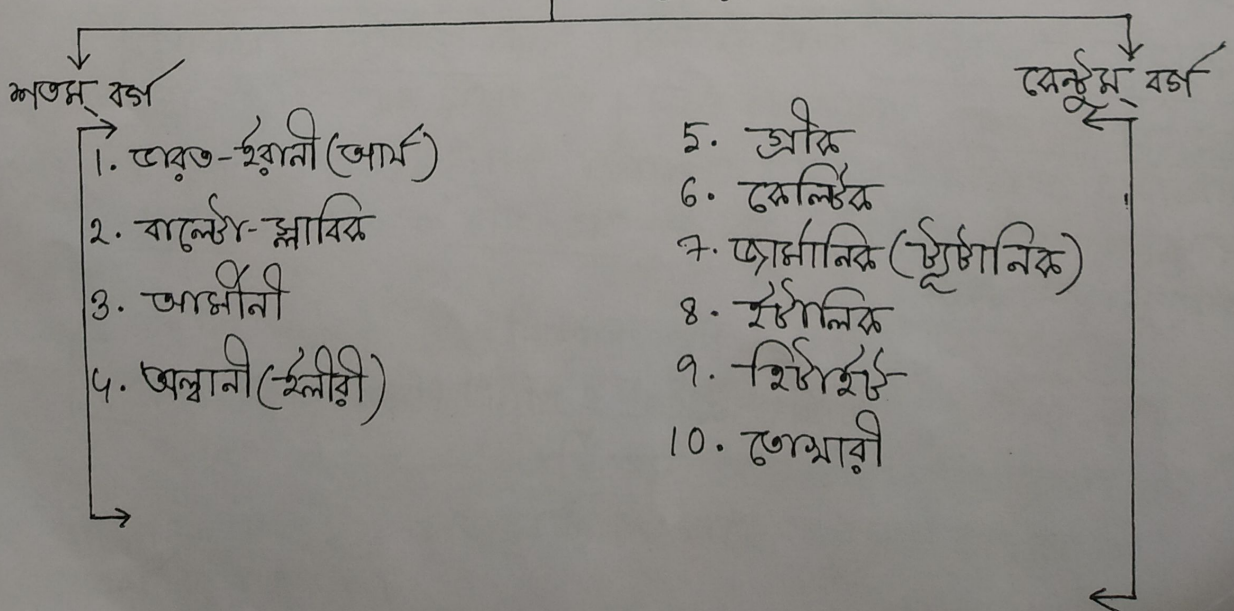 শতম্ বর্গ
1. ভারত-ইরানী (আর্য)
২. বাল্টো-স্লাবিক
3. আর্মানী
৫. অল্বানী (ইলীরী)
কেন্টুম্ বর্গ
5. গ্রীক
6. কেল্টিক
7. জার্মানিক (ট্যূটানিক)
8. ইটালিক
9. হিটাইট
10. তোখারী